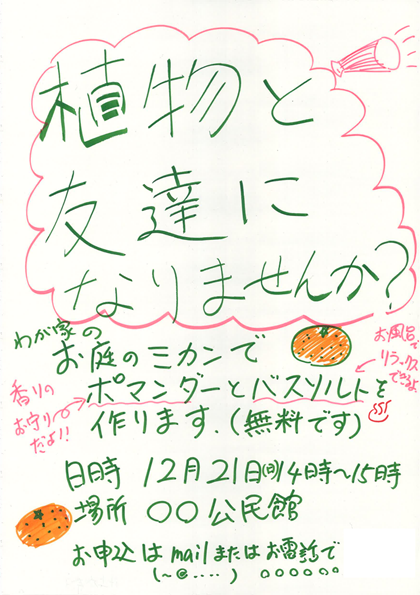 植物と
友達に
なりませんか?
わが家の
お庭のミカンで
お風呂で
リラックス
できるよ
ポマンダーとバスソルトを
香りの
お守り
だよ!!
作ります.(無料です)
日時 12月21日(日)14時〜15時
場所 ○○公民館
お申込はmailまたはお電話で
(~@....) ○○○○○○